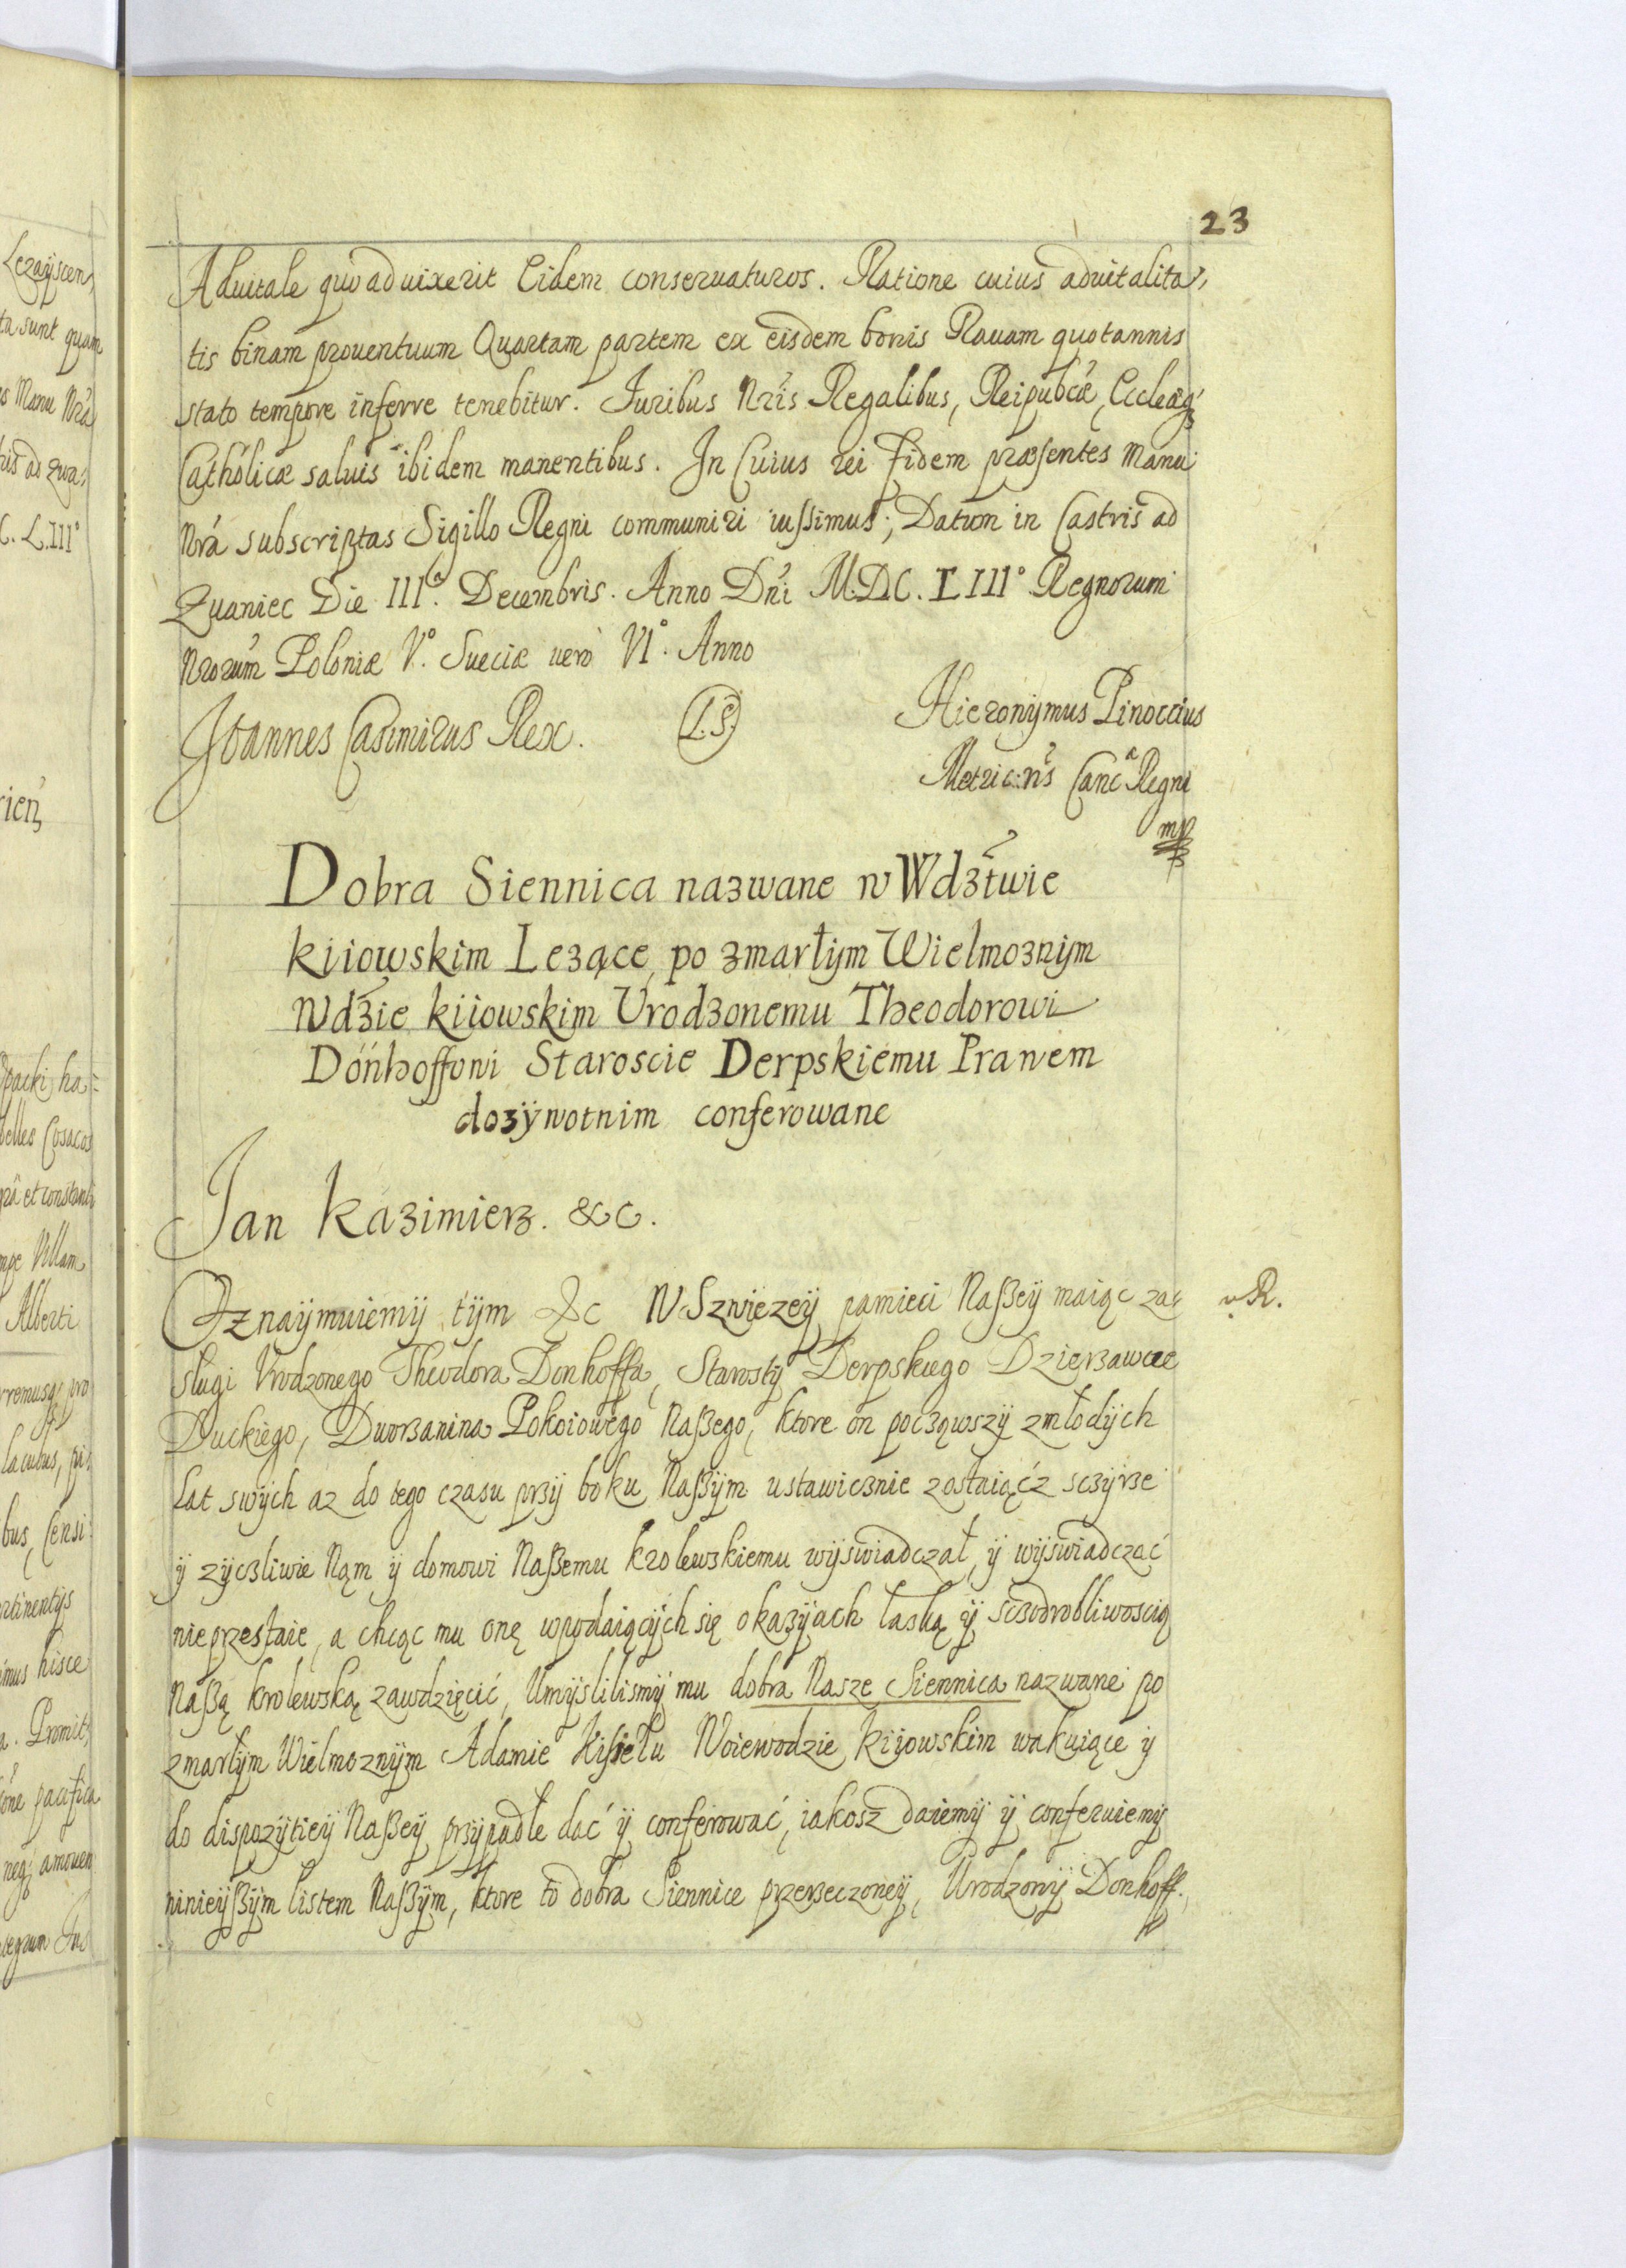 23
Aduitale quoaduixerit Eidem conseruaturos. Ratione cuius aduitalita,
tis binam prouentuum Quartam partem ex eisdem bonis Rauam quotannis
stato tempore inferre tenebitur. Juribus Nris Regalibus, Reipubcæ, Ecclæq
Catholicæ saluis ibidem manentibus. In Cuius rei Fidem præsentes Manu
Nrá subscriptas Sigillo Regni communiri iussimus; Datum in Castris ad
Zuaniec Die IIIa. Decembris. Anno Dni M.D.C.LIII° Regnorum
Nrorum Poloniæ V°. Sueciæ uero VI°. Anno
Joannes Casimirus Rex. L.S. Hieronymus Pinoccius
Metric: ns Canc Regni
mp
Dobra Siennica nazwane w Wdztwie
kiiowskim Lezące, po zmarłym Wielmoznym
Wdzie kiiowskim Vrodzonemu Theodorowi
Dónhoffowi Staroscie Derpskiemu Prawem
dozÿwotnim conferowane
Jan Kazimierz. &c.
Oznaÿmuiemÿ tÿm &c W Szwiezeÿ pamieci Naßeÿ maiąc za= R.
slugi Vrodzonego Theodora Donhoffa, Starostÿ Derpskiego Dzierzawce
Duckiego, Dworzanina Pokoiowego Naßego, ktore on począwszÿ zmłodÿch
Lat swÿch az do tego czasu przÿ boku Naßÿm ustawicznie zostaiącz sczÿrze
ÿ zÿczliwie Nąm ÿ domowi Naßemu krolewskiemu wÿswiadczał, ÿ wÿswiadczać
nieprzestaie, a chcąc mu onę wpodaiącÿch się okazÿach łaską ÿ sczodrobliwoscią
Naßą krolewską zawdzięcić, Umÿslilismÿ mu dobra Nasze Siennica nazwane po
zmarłÿm Wielmoznÿm Adamie Kisielu Woiewodzie kiiowskim wakuiące ÿ
do dispozÿtieÿ Naßeÿ przÿpadłe dać ÿ conferować, iakosz daiemÿ ÿ conferuiemÿ
ninieÿßÿm listem Naßÿm, ktore to dobra Siennice przerzeczoneÿ, Urodzonÿ Donhoff.